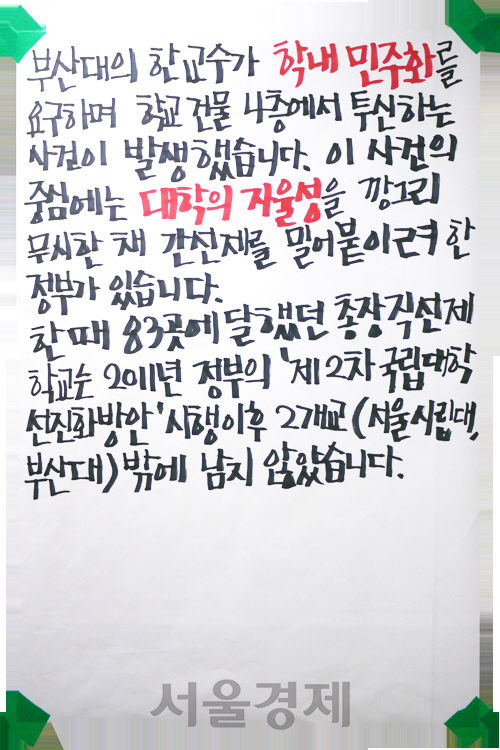 부산대의 한 교수가 학내 민주화를
요구하며 학교 건물 4층에서 투신하는
사건이 발생했습니다. 이 사건의
중심에는 대학의 자율성을 깡그리
무시한 채 간선제를 밀어붙이려 한
정부가 있습니다.
한때 83곳에 달했던 총장직선제
학교는 2011년 정부의 '제2차 국립대학
선진화방안' 시행이후 2개교(서울시립대,
부산대)밖에 남지 않았습니다.
서울경제